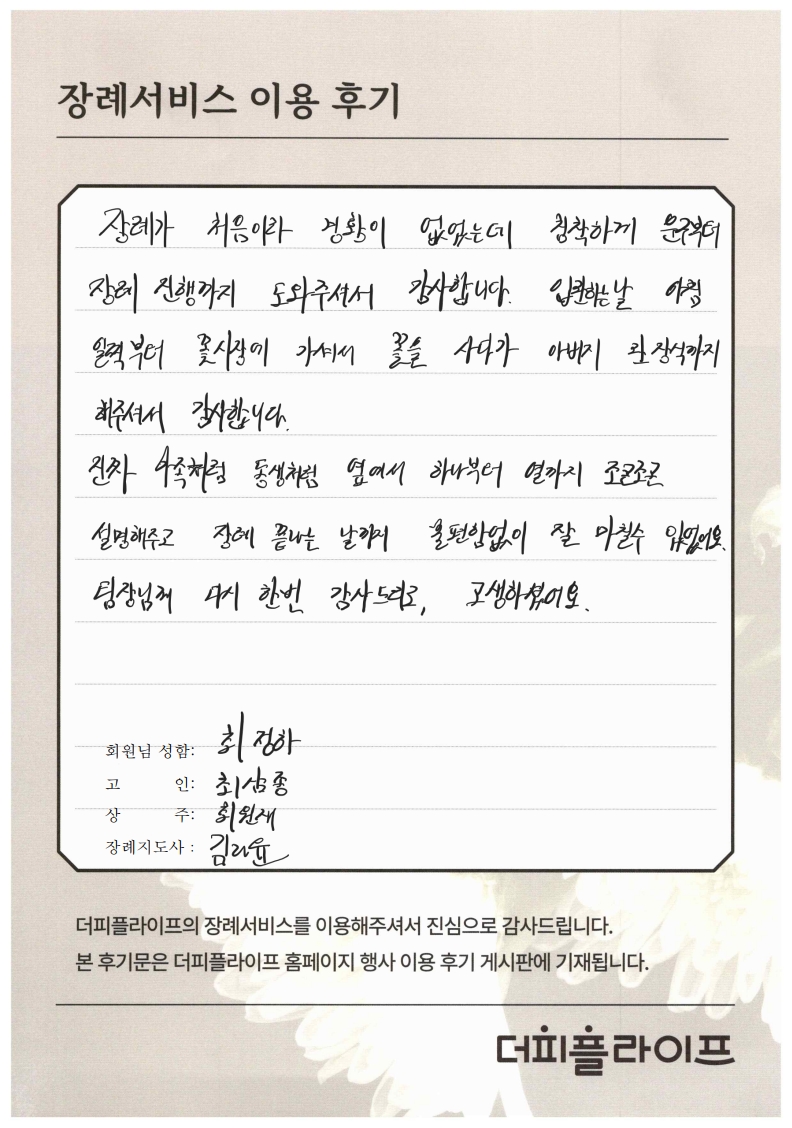 장례서비스 이용 후기
장례가 처음이라 경황이 없었는데 침착하게 운구부터
장례 진행까지 도와주셔서 감사합니다. 입관하는날 아침
일찍부터 꽃시장에 가셔서 꽃을 사다가 아버지 관장식까지
해주셔서 감사합니다.
진짜 가족처럼 동생처럼 옆에서 하나부터 열까지 조곤조곤
설명해주고 장례 끝나는 날까지 불편함없이 잘 마칠수 있었어요.
팀장님께 다시 한번 감사드리고, 고생하셨어요.
회원님 성함: 최정하
고 인: 최삼종
상 주: 최원재
장례지도사 : 김라윤
더피플라이프의 장례서비스를 이용해주셔서 진심으로 감사드립니다.
본 후기문은 더피플라이프 홈페이지 행사 이용 후기 게시판에 기재됩니다.
더피플라이프